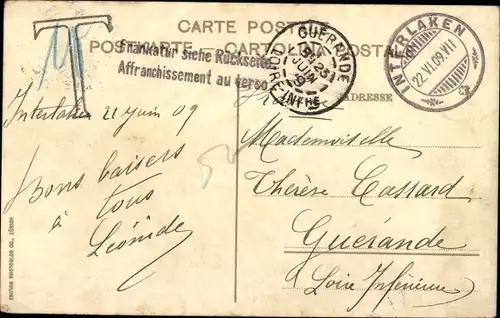 CARTE POSTALE
POSTKARTE CARTOLINA POSTALE
T
Frankatur siehe Rückseite
Affranchissement au verso
GUERANDE
LOIRE INFRE
INTERLAKEN
22.VI.09.VII
ADRESSE
Interlaken 21 juin 09
Bons baisers
à tous
Léonide
Mademoiselle
Thérèse Cassard
Guérande
Loire Inférieure